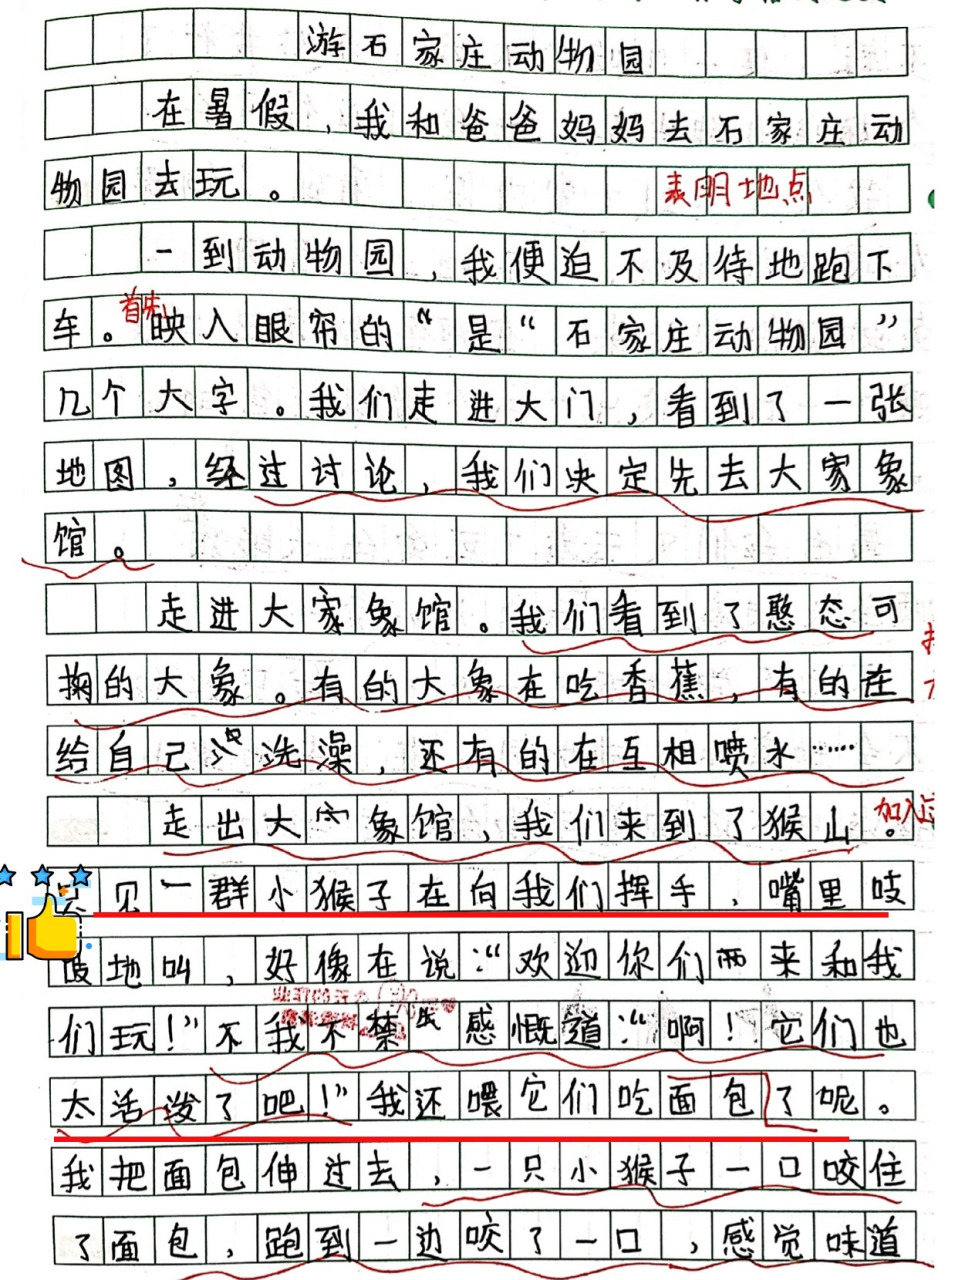 游石家庄动物园
在暑假,我和爸爸妈妈去石家庄动
物园去玩。
表明地点
一到动物园,我便迫不及待地跑下
首先
车。映入眼帘的“是“石家庄动物园”
几个大字。我们走进大门,看到了一张
地图,经过讨论,我们决定先去大家象
馆。
走进大家象馆。我们看到了憨态可
掬的大象。有的大象在吃香蕉,有的在
给自己冲洗澡,还有的在互相喷水……
走出大象馆,我们来到了猴山。
加入
见一群小猴子在向我们挥手,嘴里吱
吱地叫,好像在说:“欢迎你们两来和我
们玩!”不我不禁感慨道:“啊!它们也
太活泼了吧!”我还喂它们吃面包了呢。
我把面包伸过去,一只小猴子一口咬住
了面包,跑到一边咬了一口,感觉味道